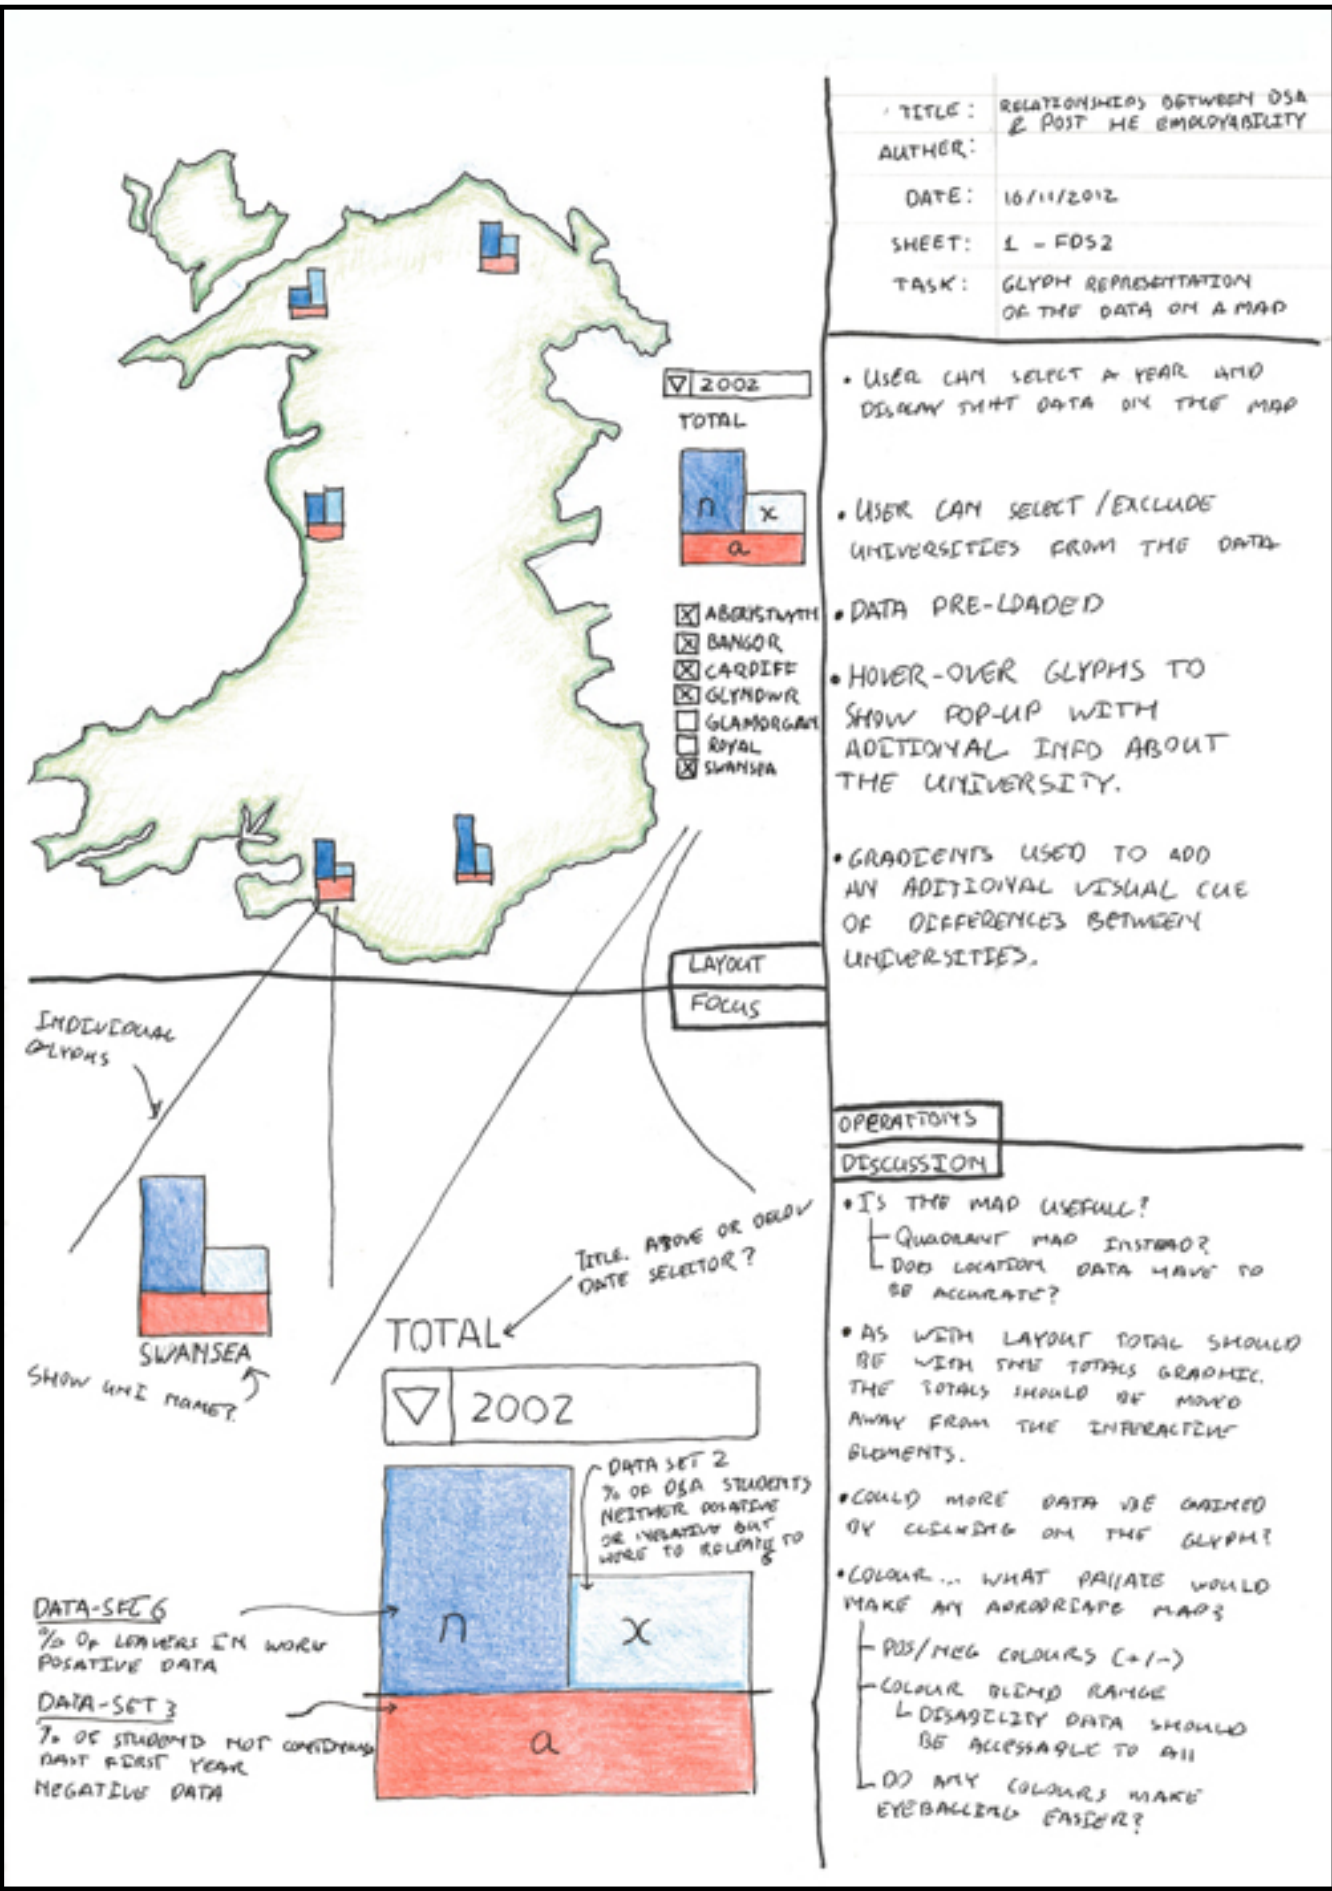 TITLE: RELATIONSHIPS BETWEEN DSA
& POST HE EMPLOYABILITY
AUTHER:
DATE: 16/11/2012
SHEET: 1 - FDS2
TASK: GLYPH REPRESENTATION
OF THE DATA ON A MAP
2002
TOTAL
n
x
a
ABERYSTWYTH
BANGOR
CARDIFF
GLYNDWR
GLAMORGAN
ROYAL
SWANSEA
LAYOUT
FOCUS
• USER CAN SELECT A YEAR AND
DISPLAY THAT DATA ON THE MAP
• USER CAN SELECT / EXCLUDE
UNIVERSITIES FROM THE DATA
• DATA PRE-LOADED
• HOVER-OVER GLYPHS TO
SHOW POP-UP WITH
ADITIONAL INFO ABOUT
THE UNIVERSITY.
• GRADIENTS USED TO ADD
AN ADITIONAL VISUAL CUE
OF DIFFERENCES BETWEEN
UNIVERSITIES.
OPERATIONS
DISCUSSION
INDIVIDUAL
GLYPHS
SWANSEA
SHOW UNI NAME?
TITLE. ABOVE OR BELOW
DATE SELECTOR?
TOTAL
2002
DATA SET 2
% OF DSA STUDENTS
NEITHER POSATIVE
OR NEGATIVE BUT
WERE TO RELATE TO
6
n
x
a
DATA-SET 6
% OF LEAVERS IN WORK
POSATIVE DATA
DATA-SET 3
% OF STUDENTS NOT CONTINUING
PAST FIRST YEAR
NEGATIVE DATA
• IS THE MAP USEFULL?
QUADRANT MAP INSTEAD?
DOES LOCATION DATA HAVE TO
BE ACCURATE?
• AS WITH LAYOUT TOTAL SHOULD
BE WITH THE TOTALS GRAPHIC.
THE TOTALS SHOULD BE MOVED
AWAY FROM THE INTERACTIVE
ELEMENTS.
• COULD MORE DATA BE GAINED
BY CLICKING ON THE GLYPH?
• COLOUR... WHAT PALLATE WOULD
MAKE AN APROPRIATE MAP?
POS/NEG COLOURS (+/-)
COLOUR BLIND RANGE
DISABILITY DATA SHOULD
BE ACCESSABLE TO All
DO ANY COLOURS MAKE
EYEBALLING EASIER?